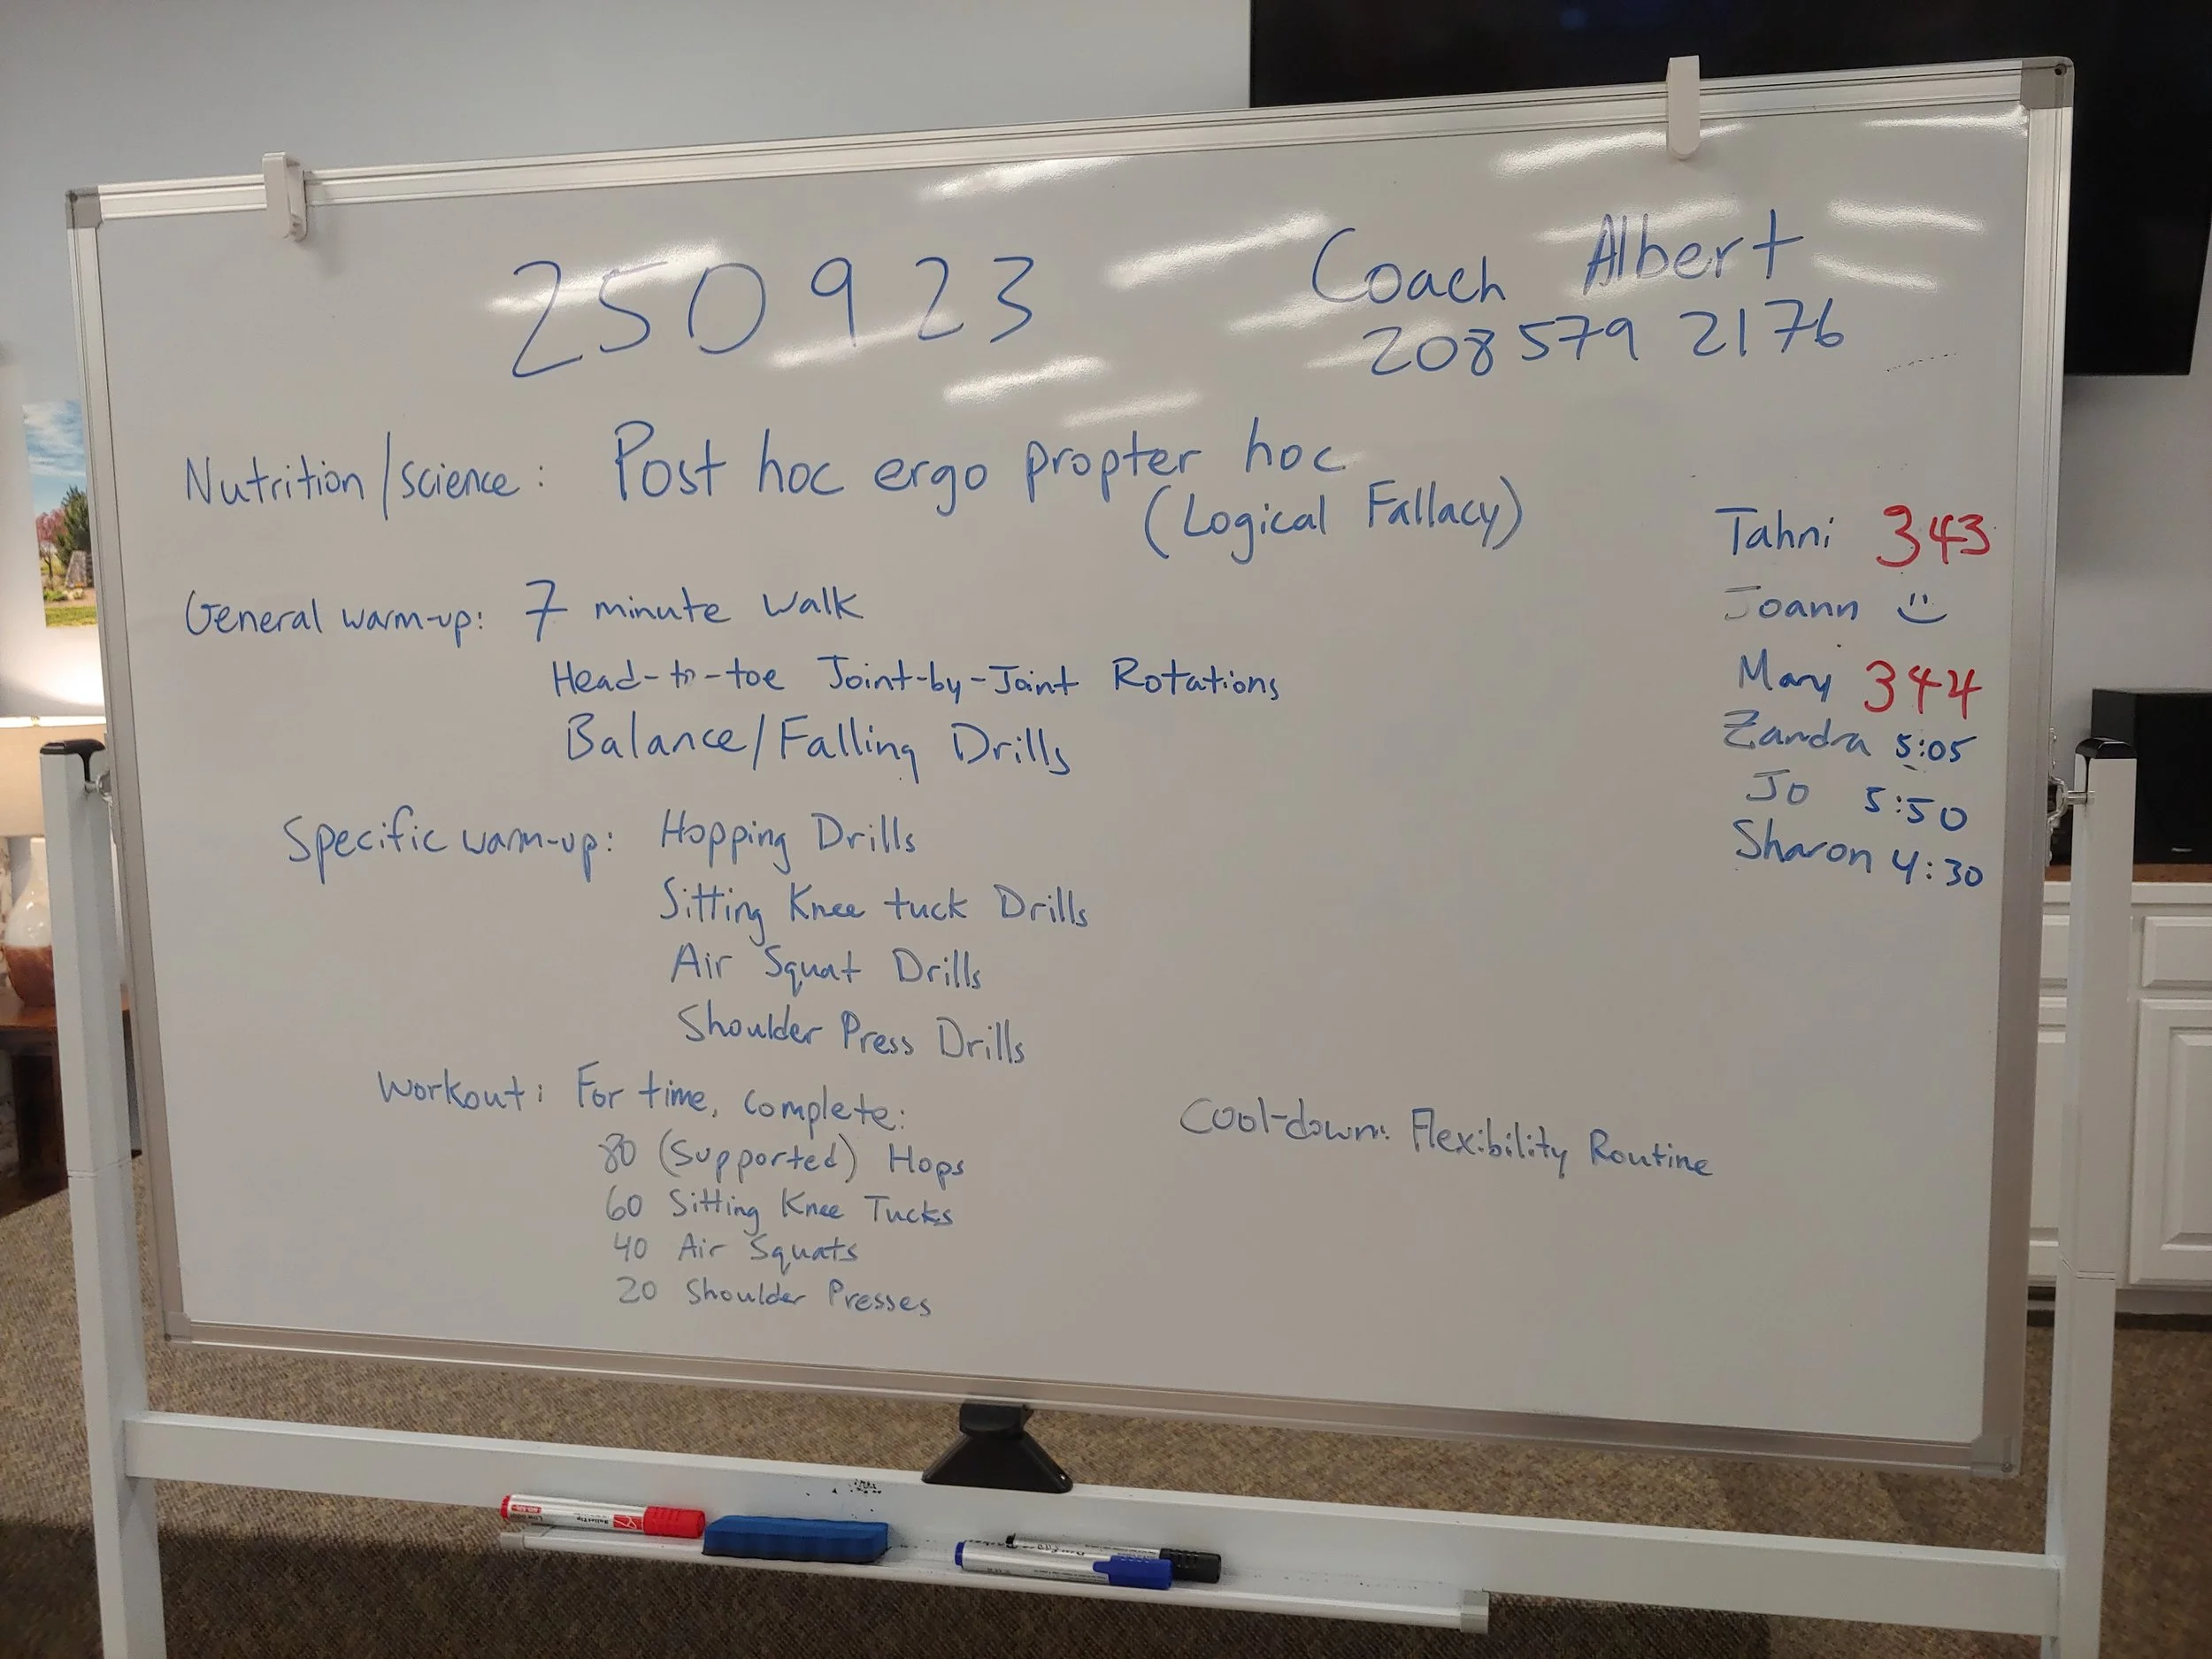 250923
Coach Albert
208 579 2176
Nutrition/science: Post hoc ergo propter hoc
(Logical Fallacy)
General warm-up: 7 minute walk
Head-to-toe Joint-by-Joint Rotations
Balance/Falling Drills
Specific warm-up: Hopping Drills
Sitting Knee tuck Drills
Air Squat Drills
Shoulder Press Drills
Workout: For time, complete:
80 (Supported) Hops
60 Sitting Knee Tucks
40 Air Squats
20 Shoulder Presses
Cool-down: Flexibility Routine
Tahni 343
Joann
Mary 344
Zandra 5:05
Jo 5:50
Sharon 4:30